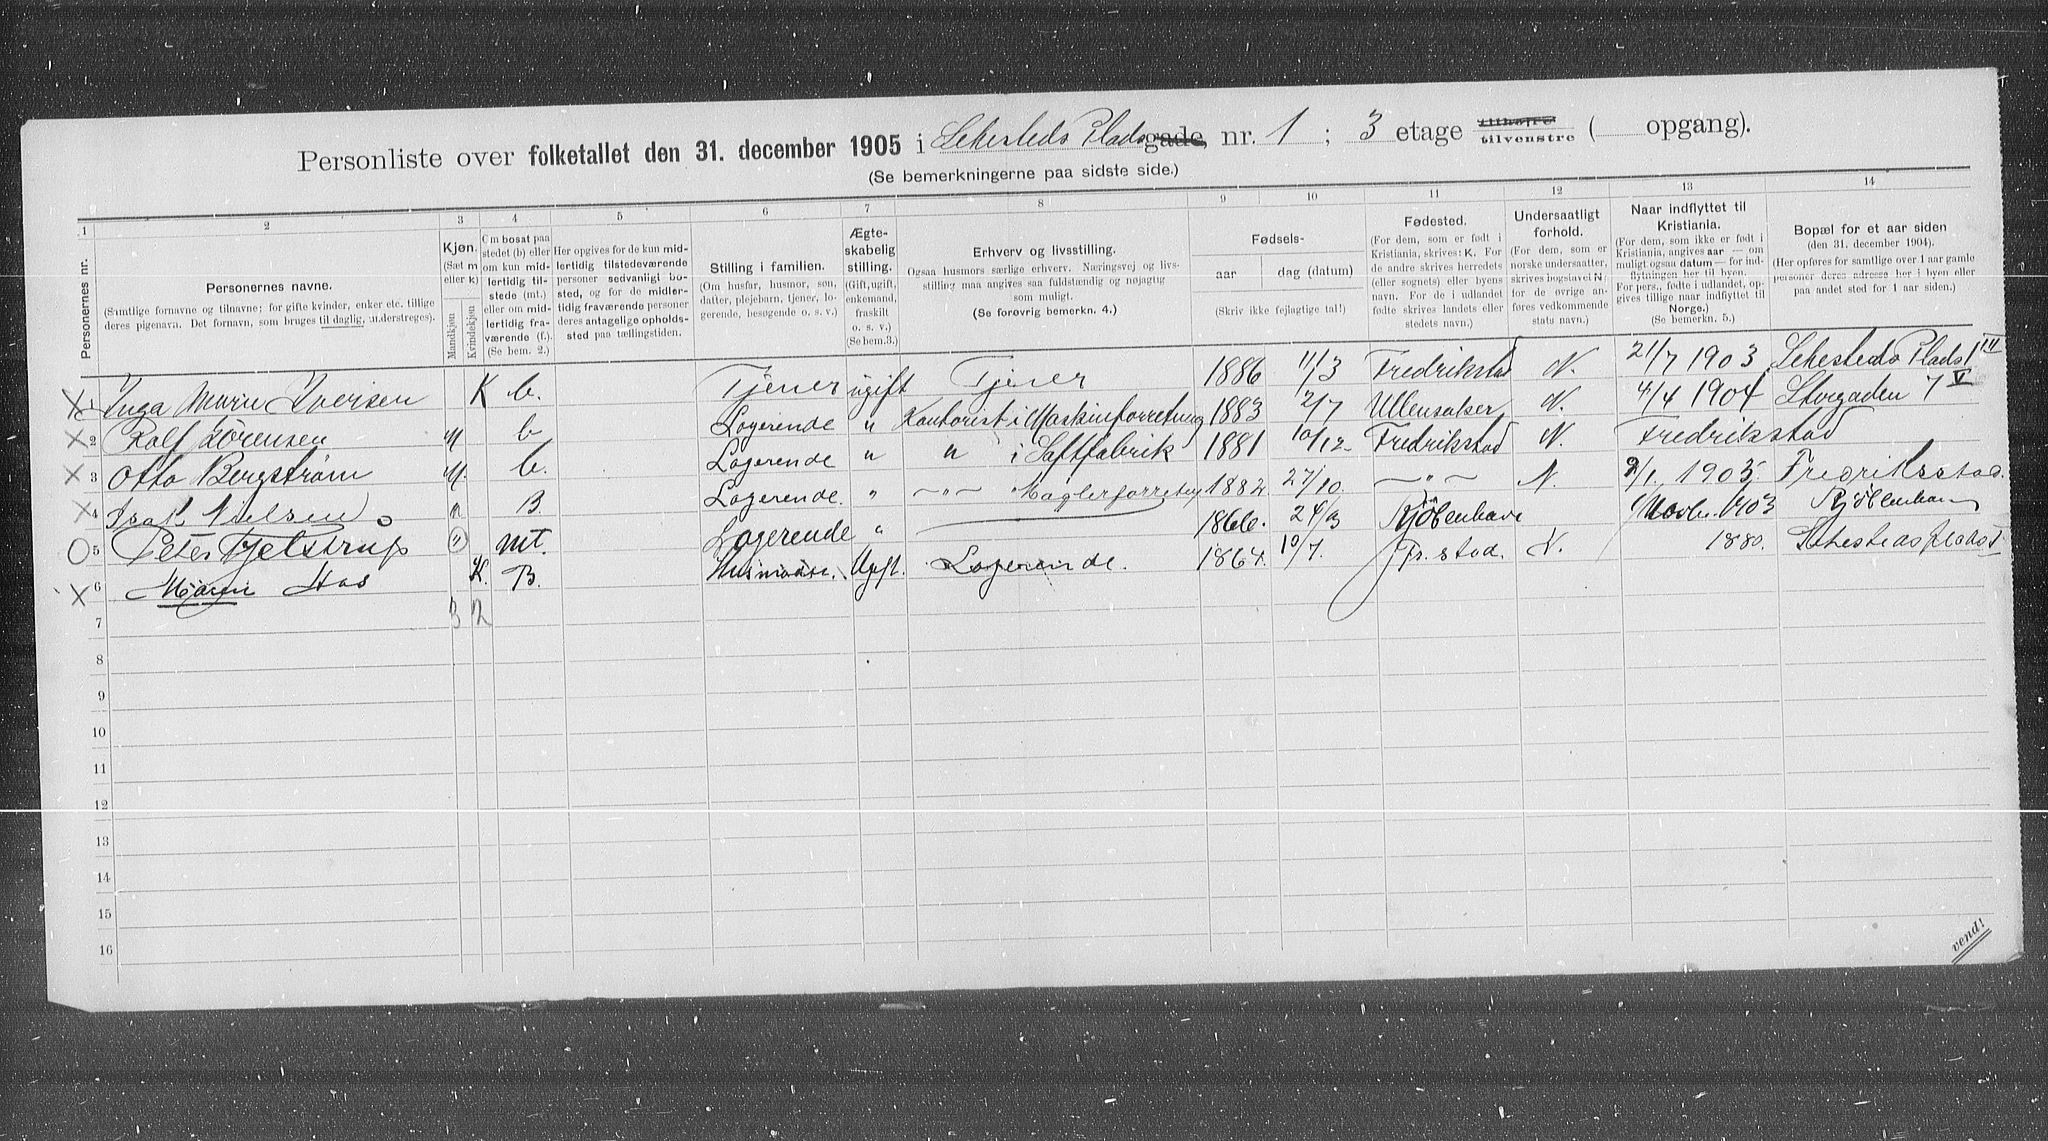 Personliste over folketallet den 31. december 1905 i Sehesteds Plads gade, nr. 1 ; 3 etage tilhøire tilvenstre ( opgang).
(Se bemerkningerne paa sidste side.)
1 2 3 4 5 6 7 8 9 10 11 12 13 14
Personernes nr.
Personernes navne.
(Samtlige fornavne og tilnavne; for gifte kvinder, enker etc. tillige
deres pigenavn. Det fornavn, som bruges til daglig, understreges).
Kjøn.
(Sæt m
eller k)
Mandkjøn
Kvindekjøn
Om bosat paa
stedet (b) eller
om kun mid-
lertidig til-
stede (mt.)
eller om mid-
lertidig fra-
værende (f.).
(Se bem. 2.)
Her opgives for de kun mid-
lertidig tilstedeværende
personer sedvanligt bo-
sted, og for de midler-
tidig fraværende personer
deres antagelige opholds-
sted paa tællingstiden.
Stilling i familien.
(Om husfar, husmor, søn,
datter, plejebarn, tjener, lo-
gerende, besøgende o. s. v.)
Ægte-
skabelig
stilling.
(Gift, ugift,
enkemand,
fraskilt
o. s. v.)
(Se bem.3.)
Erhverv og livsstilling.
Ogsaa husmors særlige erhverv. Næringsvej og livs-
stilling maa angives saa fuldstændig og nøjagtig
som muligt.
(Se forøvrig bemerkn. 4.)
Fødsels-
aar dag (datum)
(Skriv ikke fejlagtige tal!)
Fødested.
(For dem, som er født i
Kristiania, skrives: K. For
de andre skrives herredets
(eller sognets) eller byens
navn. For de i udlandet
fødte skrives landets eller
stedets navn.)
Undersaatligt
forhold.
(For dem, som er
norske undersaatter,
skrives bogstavet N;
for de øvrige an-
føres vedkommende
stats navn.)
Naar indflyttet til
Kristiania.
(For dem, som ikke er født i
Kristiania, angives aar — om
muligt ogsaa datum — for ind-
flytningen her til byen.
For pers., fødte i udlandet, op-
gives tillige naar indflyttet til
Norge.)
(Se bemerkn. 5.)
Bopæl for et aar siden
(den 31. december 1904).
(Her opføres for samtlige over 1 aar gamle
personer deres adresse her i byen eller
paa andet sted for 1 aar siden.)
X 1 Inga Marie Iversen K b. Tjener ugift Tjener 1886 11/3 Fredrikstad N. 21/7 1903 Sehesteds Plads 1 III
X 2 Rolf Sørensen M b Logerende " Kontorist i Maskinforretning 1883 2/7 Ullensaker N. 4/4 1904 Storgaden 7 V
X 3 Otto Bergstrøm M. b. Logerende " " i Saftfabrik 1881 10/12 Fredrikstad N. Fredrikstad
X 4 Nielsen B Logerende. " —"— Maglerforretng 1882 27/10. —"— N. 2/1. 1905. Fredriksstad.
O 5 Peter Fjelstrup mt. Logerende " 1866. Kjøbenhavn 1903 Kjøbenhavn
X 6 K. B. Ugift. Logerende. 1864. 10/7. Fr.stad. N. 1880. Sehesteds plads I
7 3 2
8
9
10
11
12
13
14
15
16
vend!